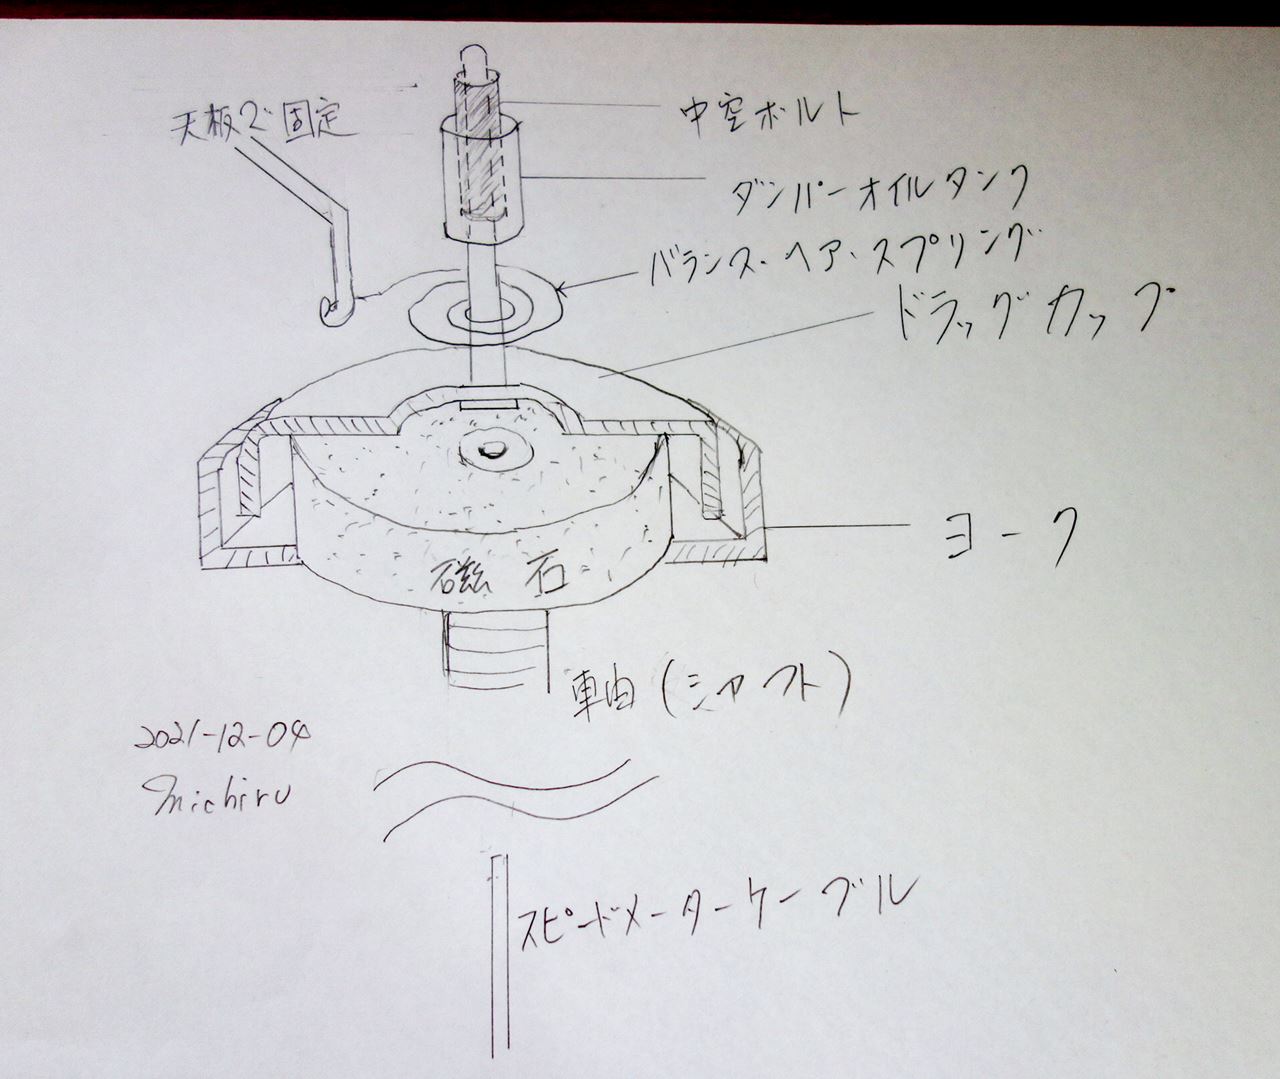 天板で固定
中空ボルト
ダンパーオイルタンク
バランス・ヘア・スプリング
ドラッグカップ
ヨーク
磁石
車由(シャフト)
2021-12-04
Michiru
スピードメーターケーブル